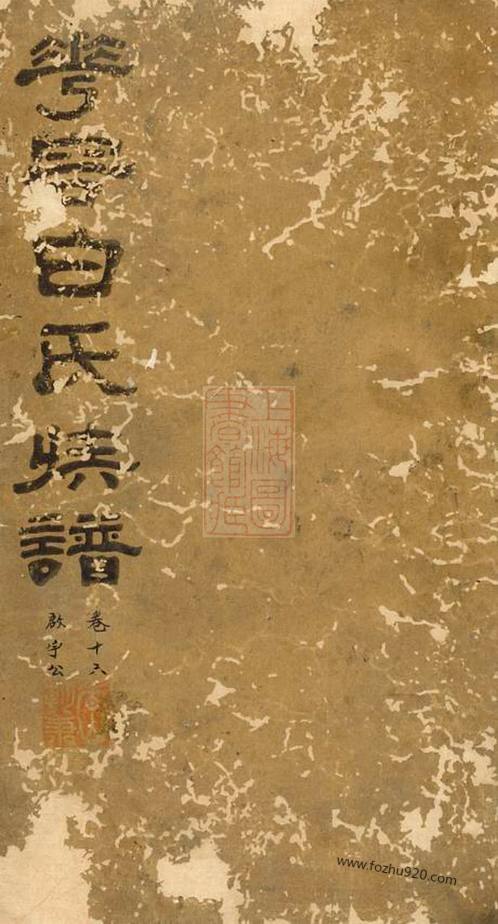 華白氏族譜
卷十六
啟宇公
上海圖
書館藏
www.fozhu920.com